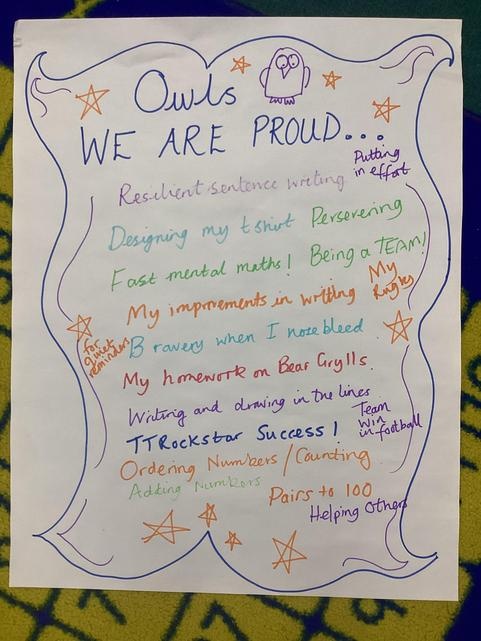 Owls
WE ARE PROUD...
Putting
in effort
Resilient sentence writing
Designing my tshirt Persevering
Fast mental maths! Being a TEAM!
My improvements in writing My
Rugby
for
quiet
reminders
Bravery when I nosebleed
My homework on Bear Grylls.
Writing and drawing in the lines
Team
win
in football
TTRockstar Success!
Ordering Numbers/Counting
Adding Numbers
Pairs to 100
Helping Others